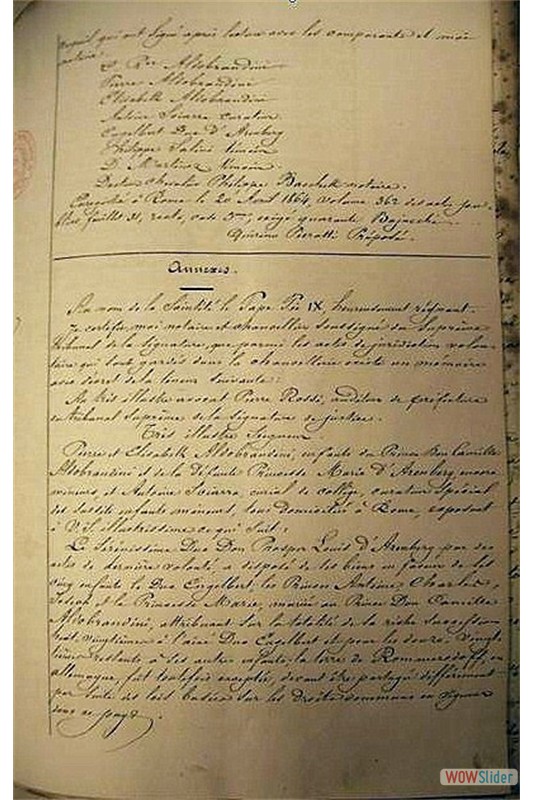 qui ont signé après lecture avec les comparants et moi
notaire.
Aldobrandini
Pierre Aldobrandini
Elisabeth Aldobrandini
Antoine Sciarra curateur
Engelbert Duc d'Arenberg
Philippe Salini témoin
D. Martinez témoin
Docteur chevalier Philippe Bacchetti notaire.
Enregistré à Rome le 20 Avril 1864, volume 362 des actes pu-
blics feuillet 31, recto, case 3me, exigé quarante Bajocchi.
Quirino Pieratti Préposé.
Annexes.
Au nom de la Sainteté le Pape Pie IX, heureusement régnant.
Je certifie, moi notaire et chancellier soussigné du Suprême
tribunal de la signature, que parmi les actes de juridiction volon-
taire qui sont gardés dans la chancellerie existe un mémoire
avec décret de la teneur suivante:
Au très illustre avocat Pierre Rossi, auditeur de préfecture
du tribunal Suprême de la signature de justice.
Très illustre Seigneur
Pierre et Elisabeth Aldobrandini, enfants du Prince Don Camille
Aldobrandini et de la défunte Princesse Marie d'Arenberg, encore
mineurs, et Antoine Sciarra, curial de collège, curateur spécial
des susdits enfants mineurs, tous domiciliés à Rome, exposent
à V. S. illustrissime ce qui suit:
Le Sérénissime Duc Don Prosper Louis d'Arenberg par des
actes de dernière volonté a disposé de ses biens en faveur de ses
cinq enfants le Duc Engelbert, les Princes Antoine Charles,
Joseph et la Princesse Marie, mariée au Prince Don Camille
Aldobrandini, attribuant sur la totalité de la riche succession
huit vingtièmes à l'aîné Duc Engelbert et pour les douze vingt-
ièmes restants à ses autres enfants; la terre de Rommersdorff, en
allemagne, fut toutefois exceptée, devant être partagé différemment
par suite des lois basées sur les droits communs en vigueur
dans ce pays.
WOWSlider